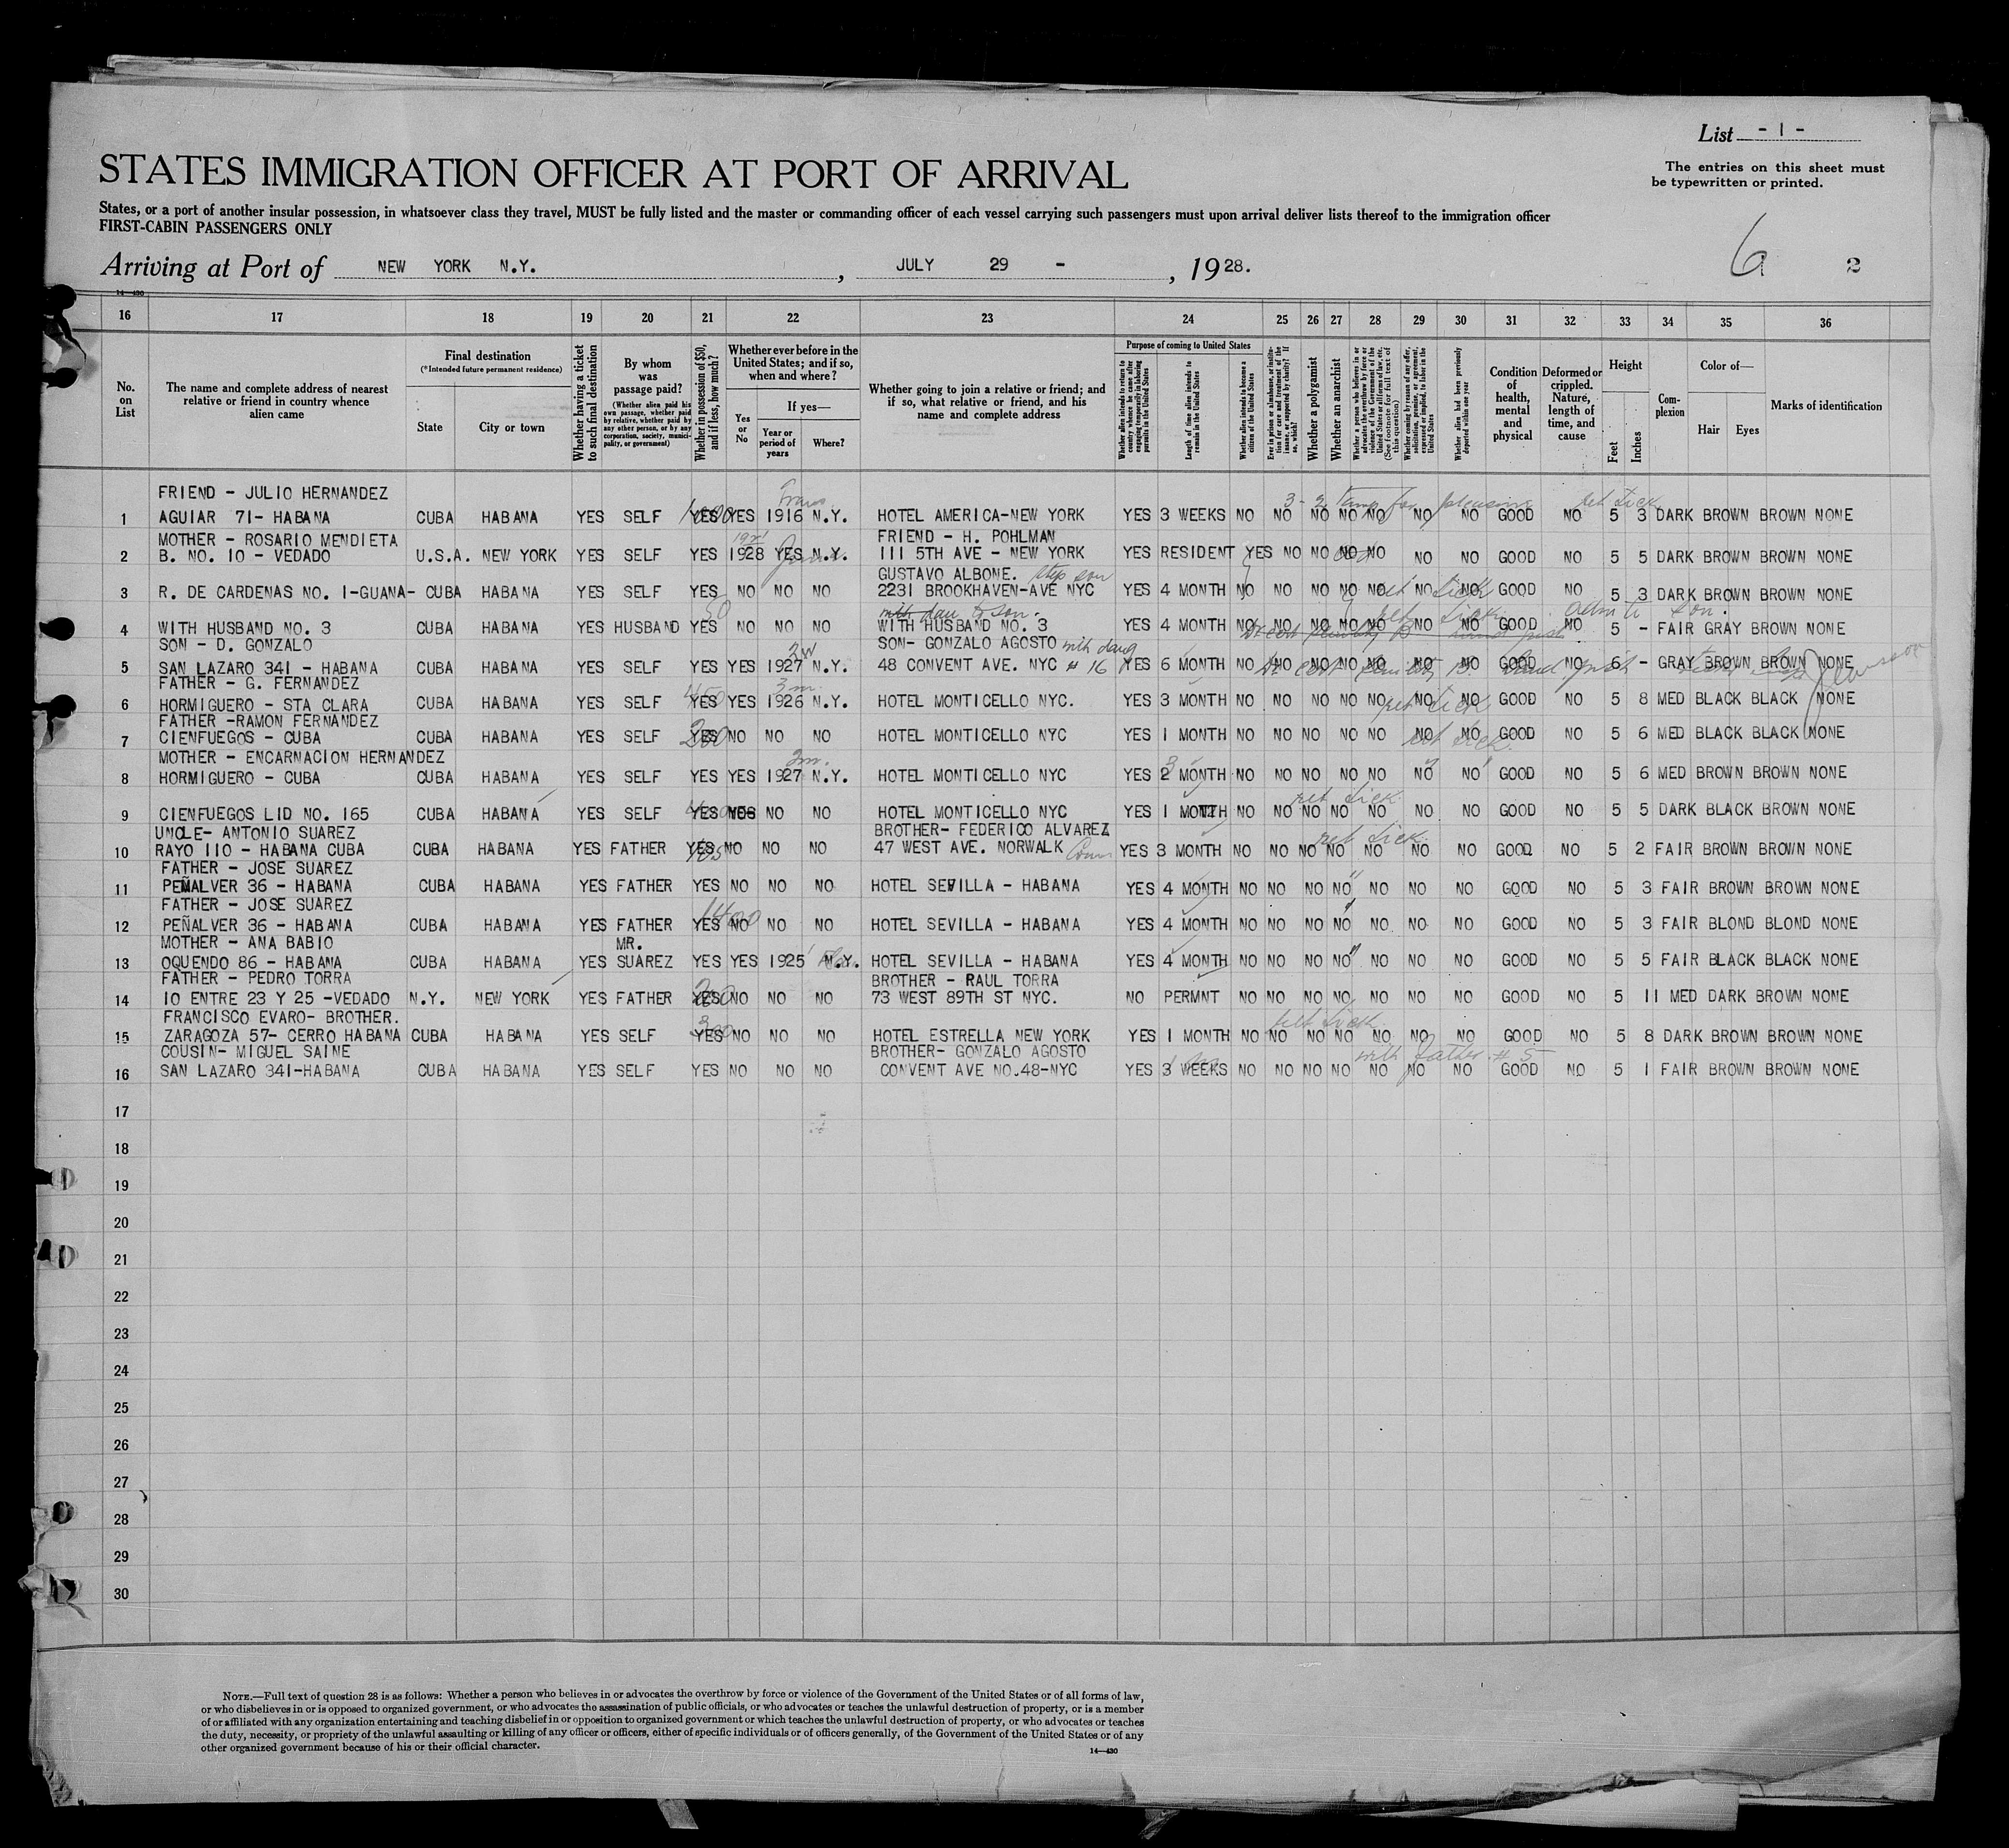 List - 1 -
STATES IMMIGRATION OFFICER AT PORT OF ARRIVAL
The entries on this sheet must
be typewritten or printed.
States, or a port of another insular possession, in whatsoever class they travel, MUST be fully listed and the master or commanding officer of each vessel carrying such passengers must upon arrival deliver lists thereof to the immigration officer
FIRST-CABIN PASSENGERS ONLY
Arriving at Port of NEW YORK N.Y. , JULY 29 - , 1928.
6 2
14—430
16 17 18 19 20 21 22 23 24 25 26 27 28 29 30 31 32 33 34 35 36
No. on List
The name and complete address of nearest relative or friend in country whence alien came
Final destination
(*Intended future permanent residence)
State
City or town
Whether having a ticket to such final destination
By whom was passage paid?
(Whether alien paid his own passage, whether paid by relative, whether paid by any other person, or by any corporation, society, municipality, or government)
Whether in possession of $50, and if less, how much?
Whether ever before in the United States; and if so, when and where?
Yes or No
If yes—
Year or period of years
Where?
Whether going to join a relative or friend; and if so, what relative or friend, and his name and complete address
Purpose of coming to United States
Whether alien intends to return to country whence he came after engaging temporarily in laboring pursuits in the United States
Length of time alien intends to remain in the United States
Whether alien intends to become a citizen of the United States
Ever in prison or almshouse, or institution for care and treatment of the insane, or supported by charity? If so, which?
Whether a polygamist
Whether an anarchist
Whether a person who believes in or advocates the overthrow by force or violence of the Government of the United States or all forms of law, etc. (See footnote for full text of this question)
Whether coming by reason of any offer, solicitation, promise, or agreement, expressed or implied, to labor in the United States
Whether alien had been previously deported within one year
Condition of health, mental and physical
Deformed or crippled. Nature, length of time, and cause
Height
Feet
Inches
Complexion
Color of—
Hair
Eyes
Marks of identification
FRIEND - JULIO HERNANDEZ
1 AGUIAR 71- HABANA CUBA HABANA YES SELF YES YES 1916 N.Y. HOTEL AMERICA-NEW YORK YES 3 WEEKS NO NO NO NO NO NO NO GOOD NO 5 3 DARK BROWN BROWN NONE
ret tick
MOTHER - ROSARIO MENDIETA FRIEND - H. POHLMAN
2 B. NO. 10 - VEDADO U.S.A. NEW YORK YES SELF YES 1928 YES N.Y. 111 5TH AVE - NEW YORK YES RESIDENT YES NO NO NO NO NO NO GOOD NO 5 5 DARK BROWN BROWN NONE
GUSTAVO ALBONE. step son
3 R. DE CARDENAS NO. 1-GUANA- CUBA HABANA YES SELF YES NO NO NO 2231 BROOKHAVEN-AVE NYC YES 4 MONTH NO NO NO NO NO NO NO GOOD NO 5 3 DARK BROWN BROWN NONE
with dau & son.
4 WITH HUSBAND NO. 3 CUBA HABANA YES HUSBAND YES NO NO NO WITH HUSBAND NO. 3 YES 4 MONTH NO NO NO NO NO NO NO GOOD NO 5 - FAIR GRAY BROWN NONE
SON - D. GONZALO SON- GONZALO AGOSTO with daug
5 SAN LAZARO 341 - HABANA CUBA HABANA YES SELF YES YES 1927 N.Y. 48 CONVENT AVE. NYC # 16 YES 6 MONTH NO NO NO NO NO NO NO GOOD NO 6 - GRAY BROWN BROWN NONE
FATHER - G. FERNANDEZ
6 HORMIGUERO - STA CLARA CUBA HABANA YES SELF YES YES 1926 N.Y. HOTEL MONTICELLO NYC. YES 3 MONTH NO NO NO NO NO NO NO GOOD NO 5 8 MED BLACK BLACK NONE
ret tick
FATHER -RAMON FERNANDEZ
7 CIENFUEGOS - CUBA CUBA HABANA YES SELF YES NO NO NO HOTEL MONTICELLO NYC YES 1 MONTH NO NO NO NO NO NO NO GOOD NO 5 6 MED BLACK BLACK NONE
ret tick.
MOTHER - ENCARNACION HERNANDEZ
8 HORMIGUERO - CUBA CUBA HABANA YES SELF YES YES 1927 N.Y. HOTEL MONTICELLO NYC YES 2 MONTH NO NO NO NO NO NO NO GOOD NO 5 6 MED BROWN BROWN NONE
ret tick
9 CIENFUEGOS LID NO. 165 CUBA HABANA YES SELF YES NO NO HOTEL MONTICELLO NYC YES 1 MONTH NO NO NO NO NO NO NO GOOD NO 5 5 DARK BLACK BROWN NONE
UNCLE- ANTONIO SUAREZ BROTHER- FEDERICO ALVAREZ
10 RAYO 110 - HABANA CUBA CUBA HABANA YES FATHER YES NO NO NO 47 WEST AVE. NORWALK Conn YES 3 MONTH NO NO NO NO NO NO NO GOOD NO 5 2 FAIR BROWN BROWN NONE
ret tick.
FATHER - JOSE SUAREZ
11 PEÑALVER 36 - HABANA CUBA HABANA YES FATHER YES NO NO NO HOTEL SEVILLA - HABANA YES 4 MONTH NO NO NO NO NO NO NO GOOD NO 5 3 FAIR BROWN BROWN NONE
FATHER - JOSE SUAREZ
12 PEÑALVER 36 - HABANA CUBA HABANA YES FATHER YES NO NO NO HOTEL SEVILLA - HABANA YES 4 MONTH NO NO NO NO NO NO NO GOOD NO 5 3 FAIR BLOND BLOND NONE
MOTHER - ANA BABIO MR.
13 OQUENDO 86 - HABANA CUBA HABANA YES SUAREZ YES YES 1925 N.Y. HOTEL SEVILLA - HABANA YES 4 MONTH NO NO NO NO NO NO NO GOOD NO 5 5 FAIR BLACK BLACK NONE
FATHER - PEDRO TORRA BROTHER - RAUL TORRA
14 10 ENTRE 23 Y 25 -VEDADO N.Y. NEW YORK YES FATHER YES NO NO NO 73 WEST 89TH ST NYC. NO PERMNT NO NO NO NO NO NO NO GOOD NO 5 11 MED DARK BROWN NONE
FRANCISCO EVARO- BROTHER.
15 ZARAGOZA 57- CERRO HABANA CUBA HABANA YES SELF YES NO NO NO HOTEL ESTRELLA NEW YORK YES 1 MONTH NO NO NO NO NO NO NO GOOD NO 5 8 DARK BROWN BROWN NONE
COUSIN- MIGUEL SAINE BROTHER- GONZALO AGOSTO with father # 5
16 SAN LAZARO 341-HABANA CUBA HABANA YES SELF YES NO NO NO CONVENT AVE NO.48-NYC YES 3 WEEKS NO NO NO NO NO NO NO GOOD NO 5 1 FAIR BROWN BROWN NONE
17
18
19
20
21
22
23
24
25
26
27
28
29
30
NOTE.—Full text of question 28 is as follows: Whether a person who believes in or advocates the overthrow by force or violence of the Government of the United States or of all forms of law,
or who disbelieves in or is opposed to organized government, or who advocates the assassination of public officials, or who advocates or teaches the unlawful destruction of property, or is a member
of or affiliated with any organization entertaining and teaching disbelief in or opposition to organized government or which teaches the unlawful destruction of property, or who advocates or teaches
the duty, necessity, or propriety of the unlawful assaulting or killing of any officer or officers, either of specific individuals or of officers generally, of the Government of the United States or of any
other organized government because of his or their official character.
14—430